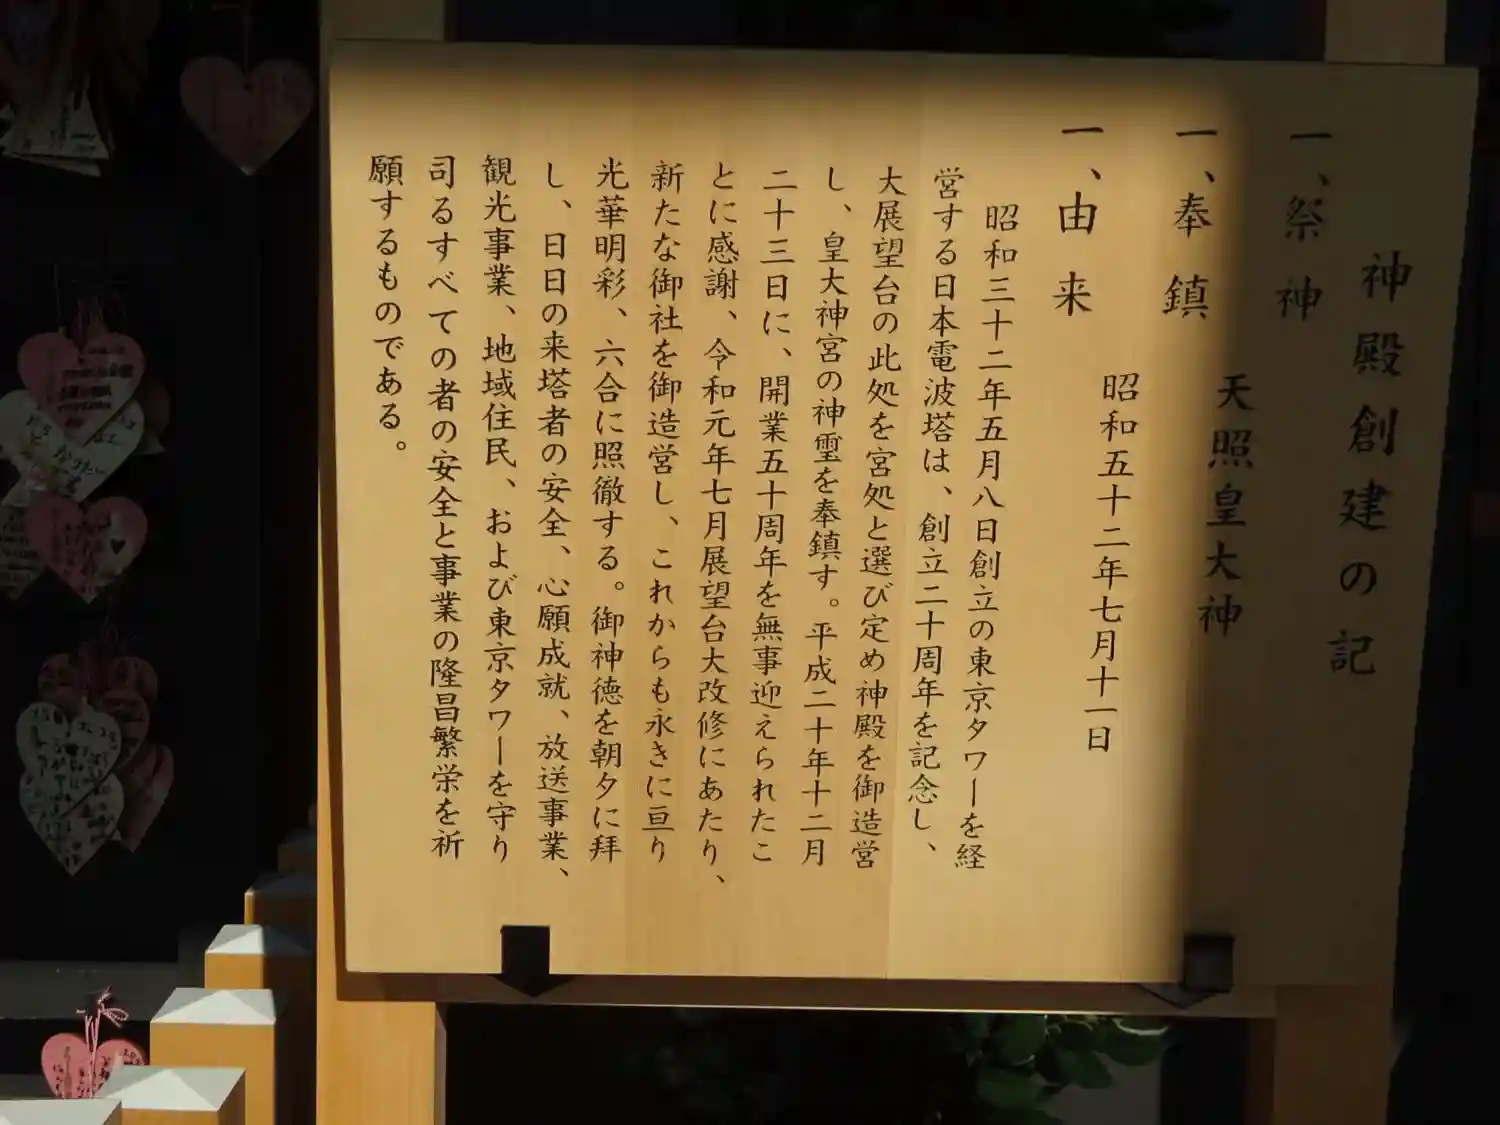 神殿創建の記
一、祭神
天照皇大神
一、奉鎮
昭和五十二年七月十一日
一、由来
昭和三十二年五月八日創立の東京タワーを経
営する日本電波塔は、創立二十周年を記念し、
大展望台の此処を宮処と選び定め神殿を御造営
し、皇大神宮の神璽を奉鎮す。平成二十年十二月
二十三日に、開業五十周年を無事迎えられたこ
とに感謝、令和元年七月展望台大改修にあたり、
新たな御社を御造営し、これからも永きに亘り
光華明彩、六合に照徹する。御神徳を朝夕に拝
し、日日の来塔者の安全、心願成就、放送事業、
観光事業、地域住民、および東京タワーを守り
司るすべての者の安全と事業の隆昌繁栄を祈
願するものである。